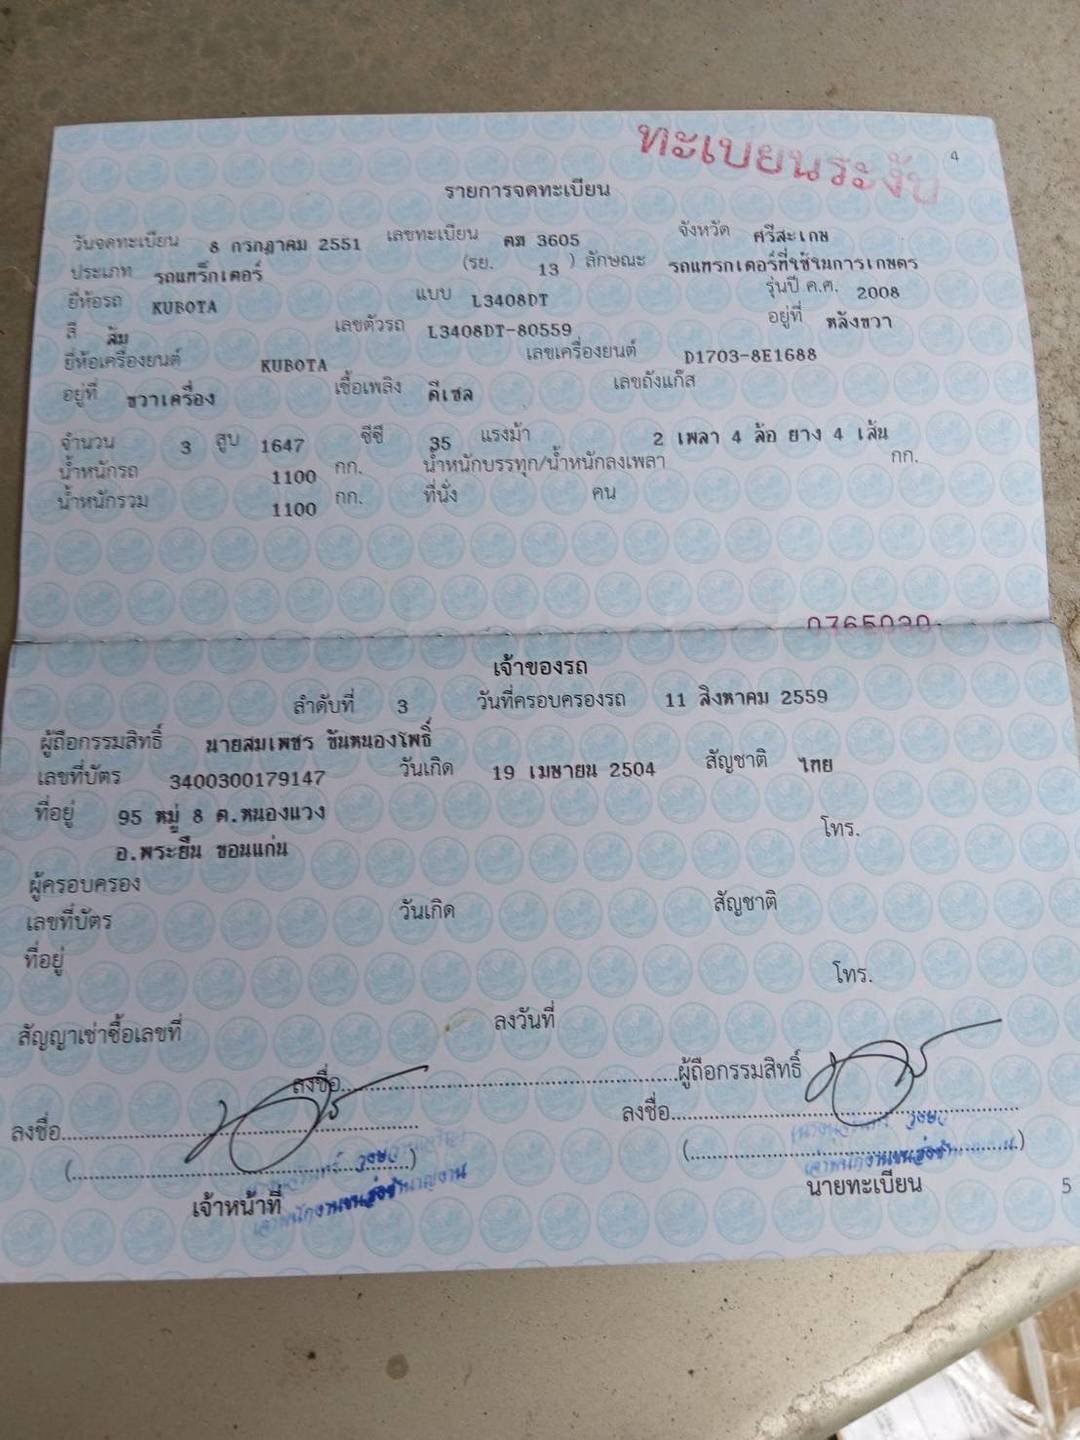 ทะเบียนระงับ
4
รายการจดทะเบียน
วันจดทะเบียน 8 กรกฎาคม 2551 เลขทะเบียน ตฆ 3605 จังหวัด ศรีสะเกษ
ประเภท รถแทร็กเตอร์ (รย. 13 ) ลักษณะ รถแทรกเตอร์ที่ใช้ในการเกษตร
ยี่ห้อรถ KUBOTA แบบ L3408DT รุ่นปี ค.ศ. 2008
สี ส้ม เลขตัวรถ L3408DT-80559 อยู่ที่ หลังขวา
ยี่ห้อเครื่องยนต์ KUBOTA เลขเครื่องยนต์ D1703-8E1688
อยู่ที่ ขวาเครื่อง เชื้อเพลิง ดีเซล เลขถังแก๊ส
จำนวน 3 สูบ 1647 ซีซี 35 แรงม้า 2 เพลา 4 ล้อ ยาง 4 เส้น
น้ำหนักรถ 1100 กก. น้ำหนักบรรทุก/น้ำหนักลงเพลา กก.
น้ำหนักรวม 1100 กก. ที่นั่ง คน
เจ้าของรถ
ลำดับที่ 3 วันที่ครอบครองรถ 11 สิงหาคม 2559
ผู้ถือกรรมสิทธิ์ นายสมเพชร ขันหนองโพธิ์
เลขที่บัตร 3400300179147 วันเกิด 19 เมษายน 2504 สัญชาติ ไทย
ที่อยู่ 95 หมู่ 8 ต.หนองแวง โทร.
อ.พระยืน ขอนแก่น
ผู้ครอบครอง
เลขที่บัตร วันเกิด สัญชาติ
ที่อยู่ โทร.
สัญญาเช่าซื้อเลขที่ ลงวันที่
ลงชื่อ ผู้ถือกรรมสิทธิ์
ลงชื่อ ลงชื่อ
เจ้าหน้าที่ นายทะเบียน
5